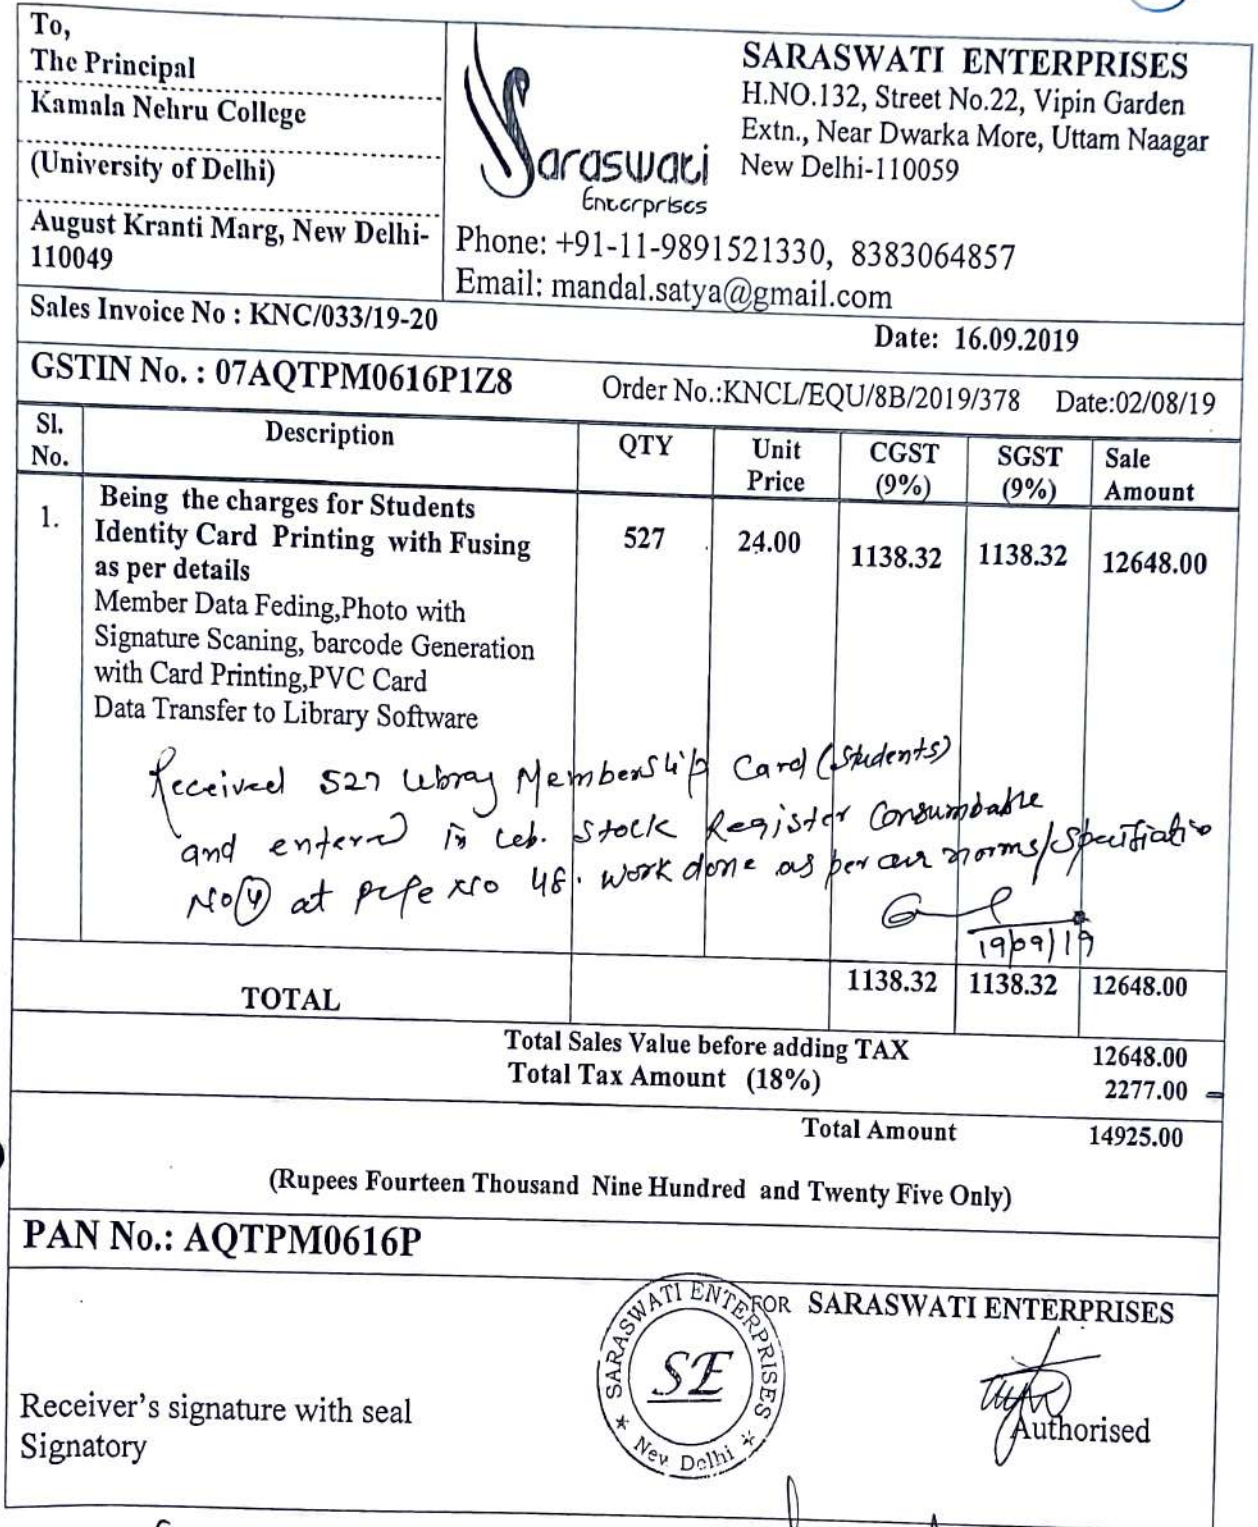 To,
The Principal
Kamala Nehru College
(University of Delhi)
August Kranti Marg, New Delhi-
110049
Saraswati
Enterprises
SARASWATI ENTERPRISES
H.NO.132, Street No.22, Vipin Garden
Extn., Near Dwarka More, Uttam Naagar
New Delhi-110059
Phone: +91-11-9891521330, 8383064857
Email: mandal.satya@gmail.com
Sales Invoice No : KNC/033/19-20
Date: 16.09.2019
GSTIN No. : 07AQTPM0616P1Z8
Order No.:KNCL/EQU/8B/2019/378 Date:02/08/19
Sl. No. Description QTY Unit Price CGST (9%) SGST (9%) Sale Amount
1. Being the charges for Students
Identity Card Printing with Fusing 527 24.00 1138.32 1138.32 12648.00
as per details
Member Data Feding,Photo with
Signature Scaning, barcode Generation
with Card Printing,PVC Card
Data Transfer to Library Software
Received 527 Membership Card (Students)
and entered in Leb. Stock Register Consumbable
No (4) at No 48. Work done as per our norms/
19/09/19
TOTAL 1138.32 1138.32 12648.00
Total Sales Value before adding TAX 12648.00
Total Tax Amount (18%) 2277.00
Total Amount 14925.00
(Rupees Fourteen Thousand Nine Hundred and Twenty Five Only)
PAN No.: AQTPM0616P
SARASWATI ENTERPRISES
SE
New Delhi
FOR SARASWATI ENTERPRISES
Receiver's signature with seal
Authorised
Signatory